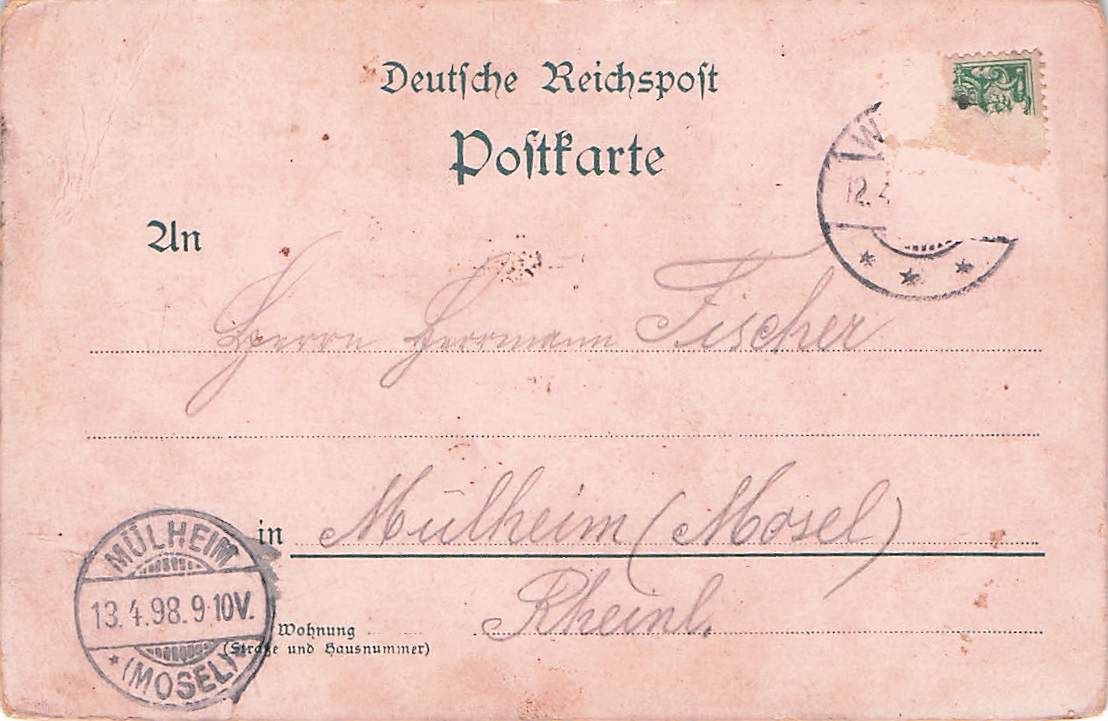 Deutsche Reichspost
Postkarte
W
12. 4
An
Herrn Herrmann Fischer
in Mülheim (Mosel)
Rheinl.
Wohnung
(Straße und Hausnummer)
MÜLHEIM
13.4.98.9-10V.
* (MOSEL) *